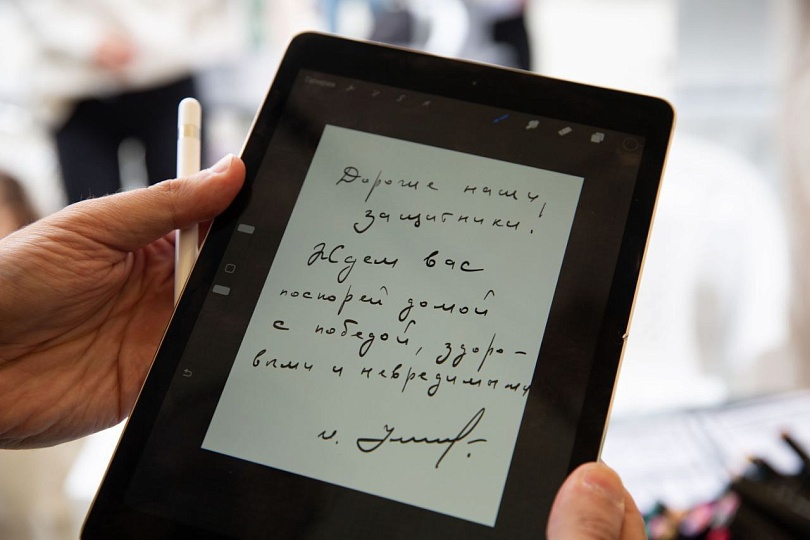 Дорогие наши
защитники!
Ждем вас
поскорей домой
с победой, здоро-
выми и невредимыми